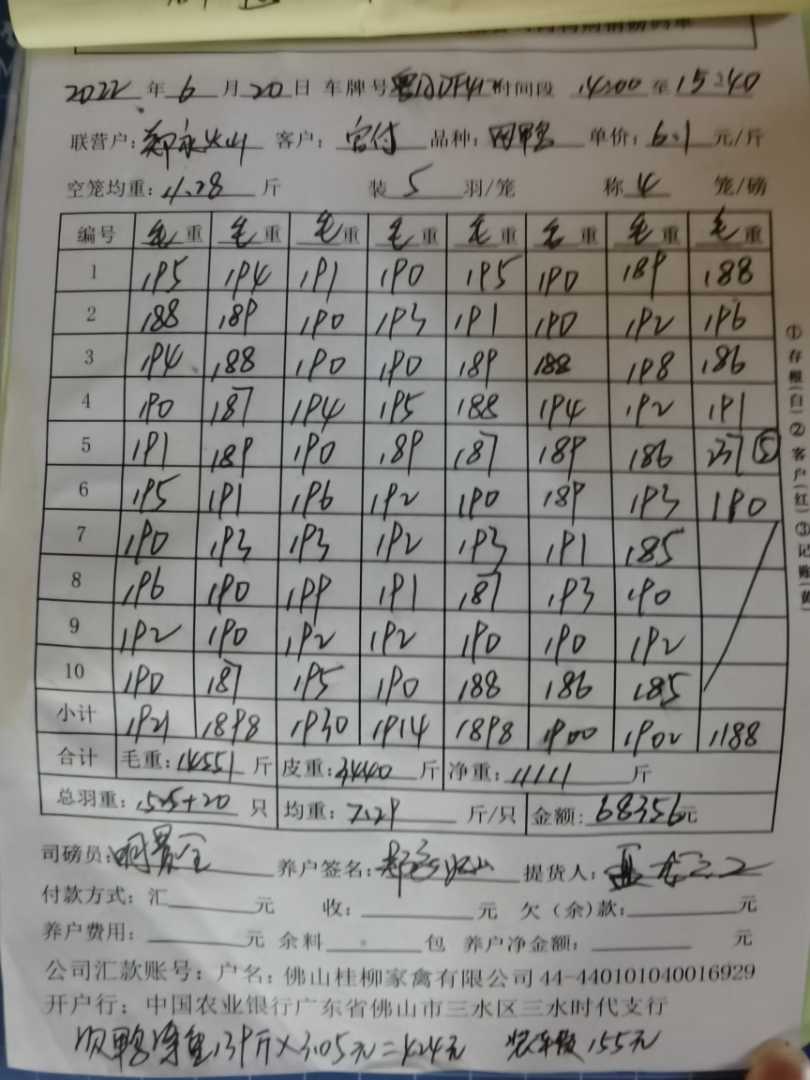 2022年6月20日 车牌号 时间段 14:00至15:40
联营户:郑永火山 客户:宫付 品种: 单价:6.1元/斤
空笼均重:4.28斤 装5羽/笼 称4笼/磅
编号 毛重 毛重 毛重 毛重 毛重 毛重 毛重 毛重
1 195 194 191 190 195 190 189 188
2 188 189 190 193 191 190 192 196
3 194 188 190 190 189 188 198 186
4 190 187 194 195 188 194 192 191
5 191 189 190 189 187 189 186 237⑤
6 195 191 196 192 190 189 193 190
7 190 193 193 192 193 191 185
8 196 190 199 191 187 193 190
9 192 190 192 192 190 190 192
10 190 187 195 190 188 186 185
小计 1921 1898 1930 1914 1898 1900 1902 1188
合计 毛重:14551斤 皮重:3440斤 净重:11111斤
总羽重:1525+20只 均重:7.29斤/只 金额:68356元
司磅员: 养户签名: 提货人:
付款方式:汇 元 收: 元 欠(余)款: 元
养户费用: 元 余料 包 养户净金额: 元
公司汇款账号:户名:佛山桂柳家禽有限公司44-440101040016929
开户行:中国农业银行广东省佛山市三水区三水时代支行
鸭净重139斤×3.05元=424元 装车费155元
①存根(白)②客户(红)③记账(黄